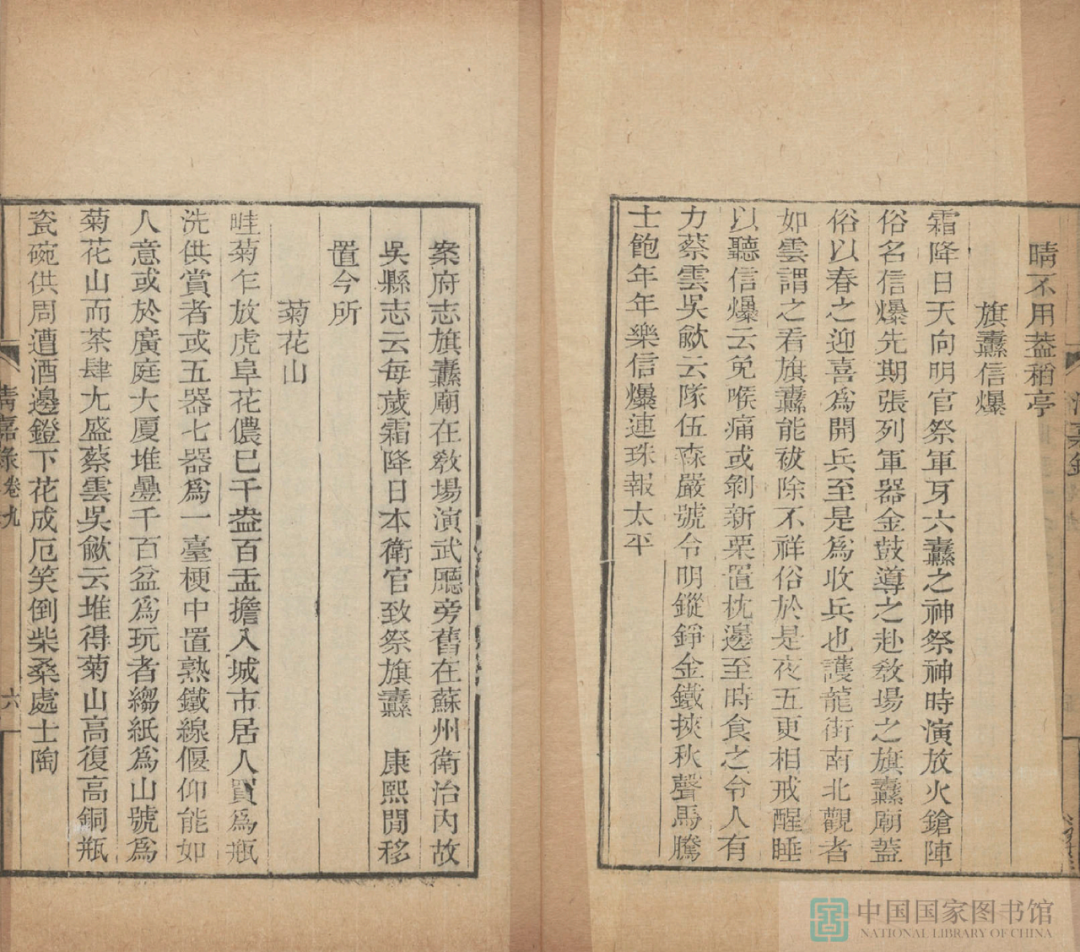 晴不用葢稻亭
旗纛信爆
霜降日天向明官祭軍牙六纛之神祭神時演放火鎗陣
俗名信爆先期張列軍器金鼓導之赴敎場之旗纛廟葢
俗以春之迎喜爲開兵至是爲收兵也護龍街南北觀者
如雲謂之看旗纛能祓除不祥俗於是夜五更相戒醒睡
以聽信爆云免喉痛或剝新栗置枕邊至時食之令人有
力蔡雲吳歈云隊伍森嚴號令明鏦錚金鐵挾秋聲馬騰
士飽年年樂信爆連珠報太平
案府志旗纛廟在敎場演武廳旁舊在蘇州衛治內故
吳縣志云每歲霜降日本衛官致祭旗纛 康熙閒移
置今所
菊花山
畦菊乍放虎阜花儂已千盎百盂擔入城市居人買爲瓶
洗供賞者或五器七器爲一臺梗中置熟鐵線偃仰能如
人意或於廣庭大厦堆疊千百盆爲玩者縐紙爲山號爲
菊花山而茶肆尢盛蔡雲吳歈云堆得菊山高復高銅瓶
瓷碗供周遭酒邊鐙下花成厄笑倒柴桑處士陶
清嘉录卷九
六
中国国家图书馆
NATIONAL LIBRARY OF CHINA